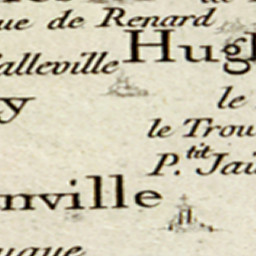 ue de Renard
Hugl
alleville
y
le
le Trou
P.tit Jai
nville
uque